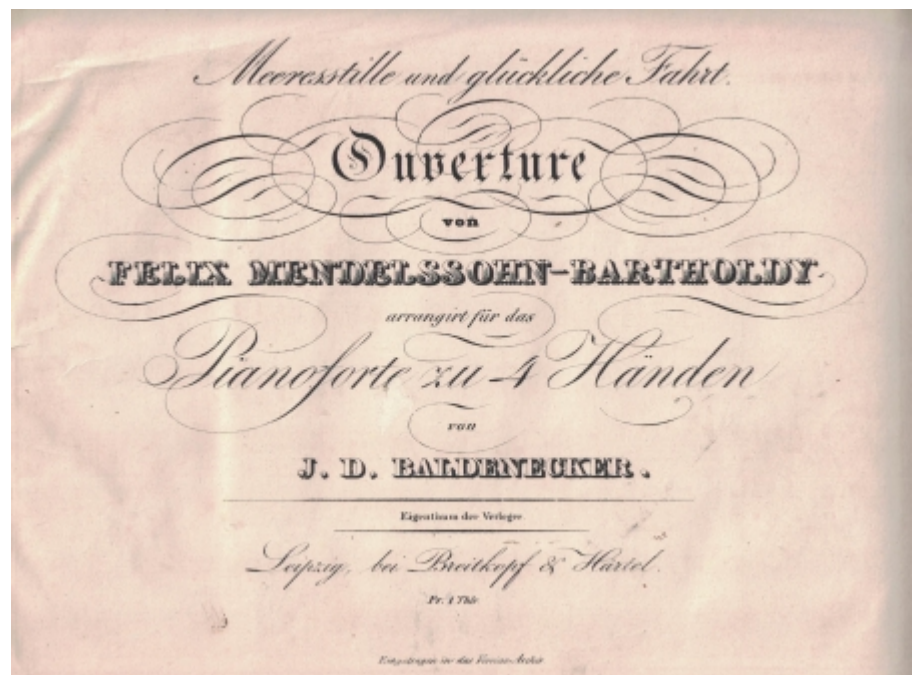 Meeresstille und glückliche Fahrt.
Ouverture
von
FELIX MENDELSSOHN-BARTHOLDY
arrangirt für das
Pianoforte zu 4 Händen
von
J. D. BALDENECKER.
Eigenthum der Verleger.
Leipzig, bei Breitkopf & Härtel.
Pr. 1 Thlr.
Eingetragen in das Vereins-Archiv